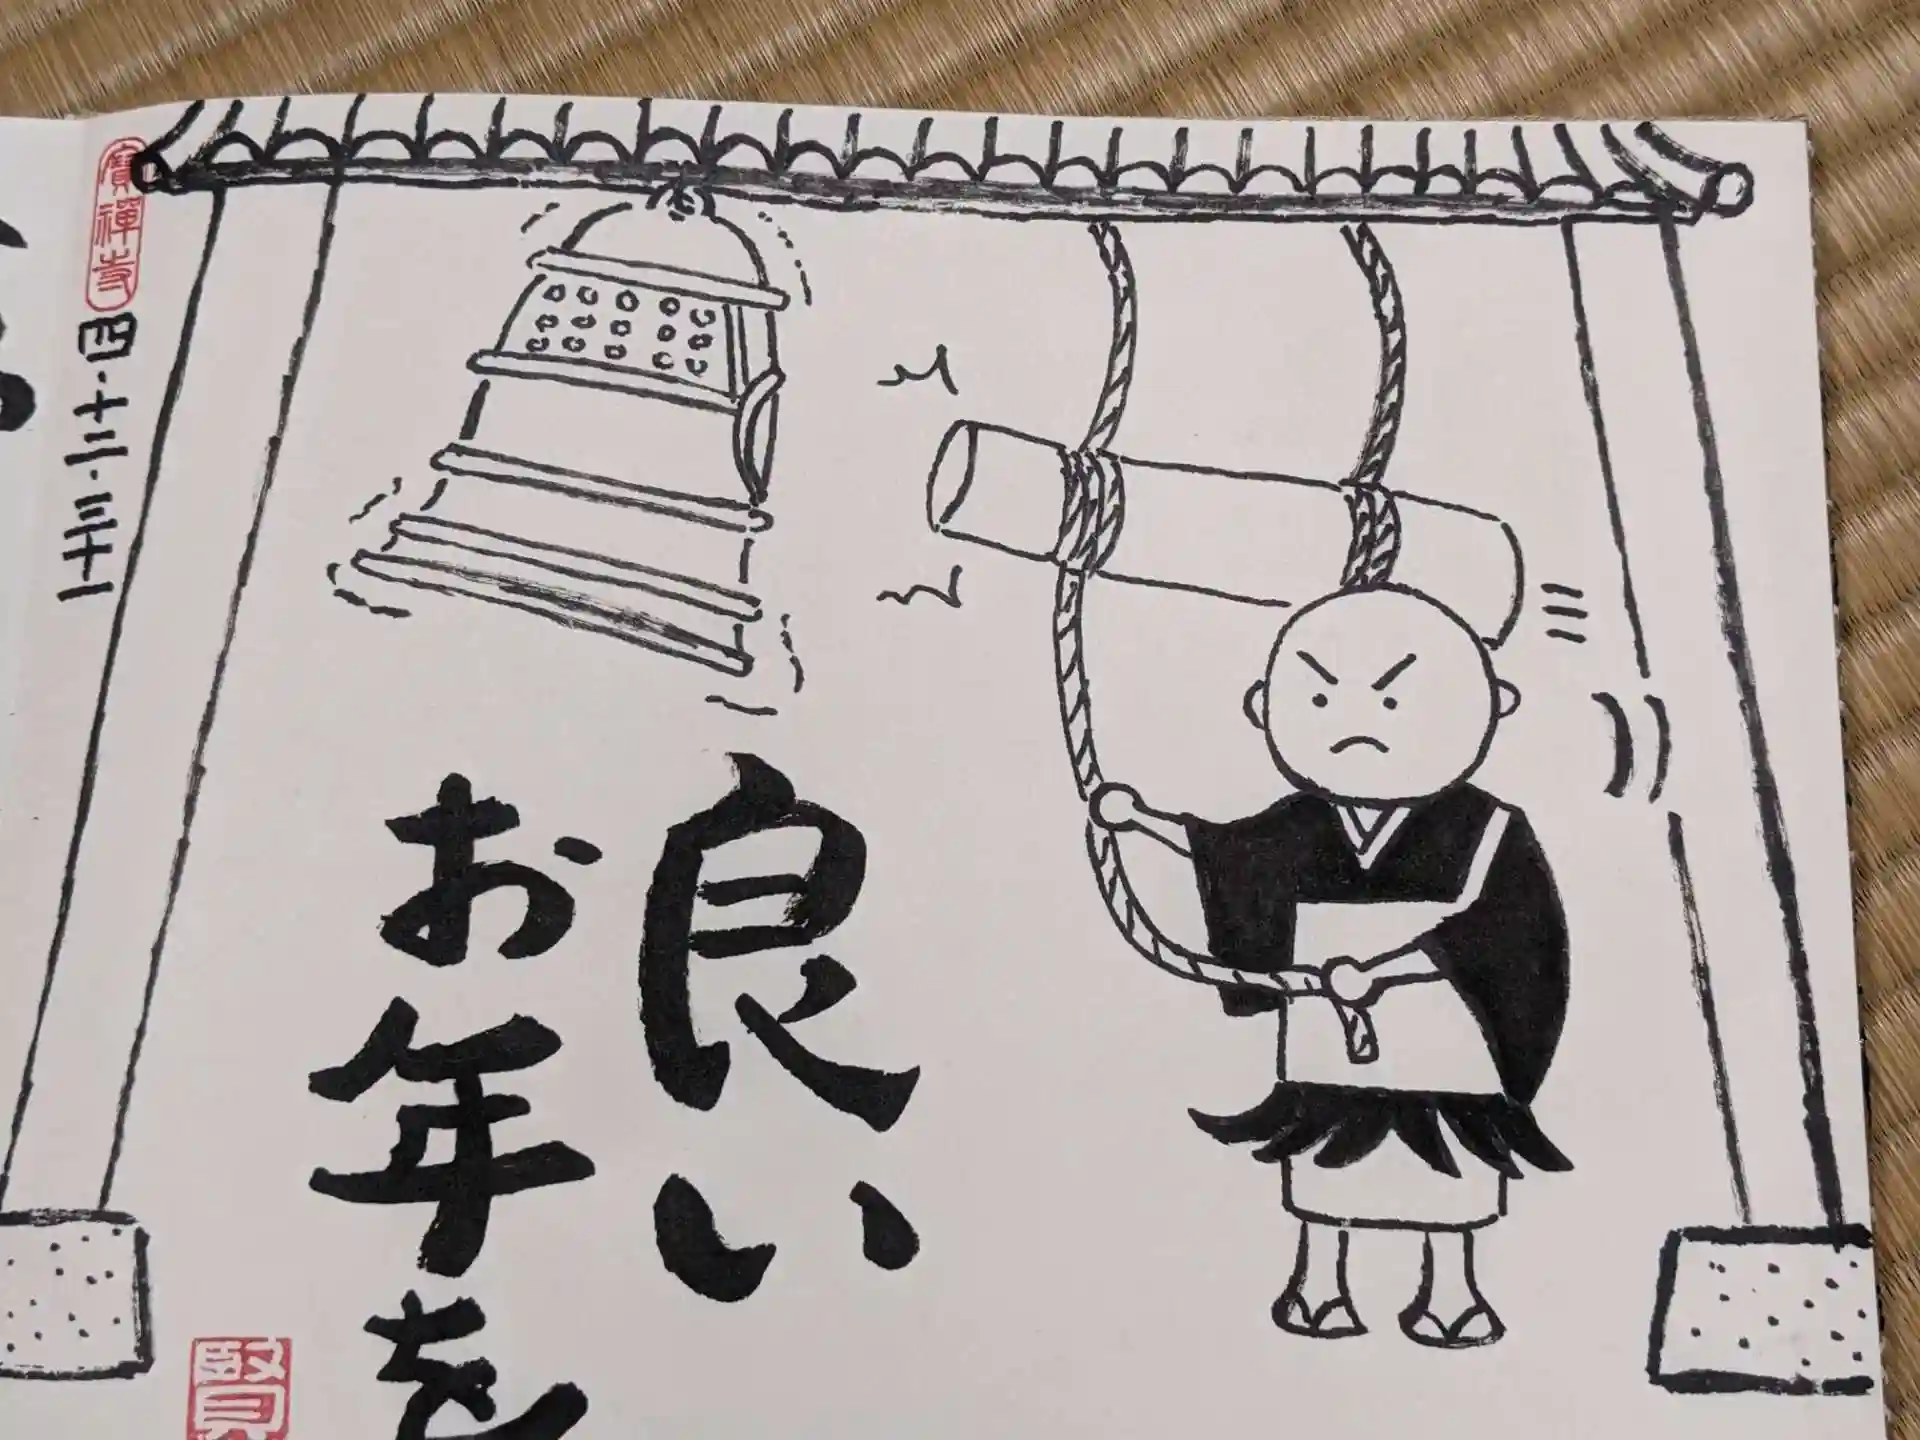 良い
お年を
寶禪寺
四・十二・三十一